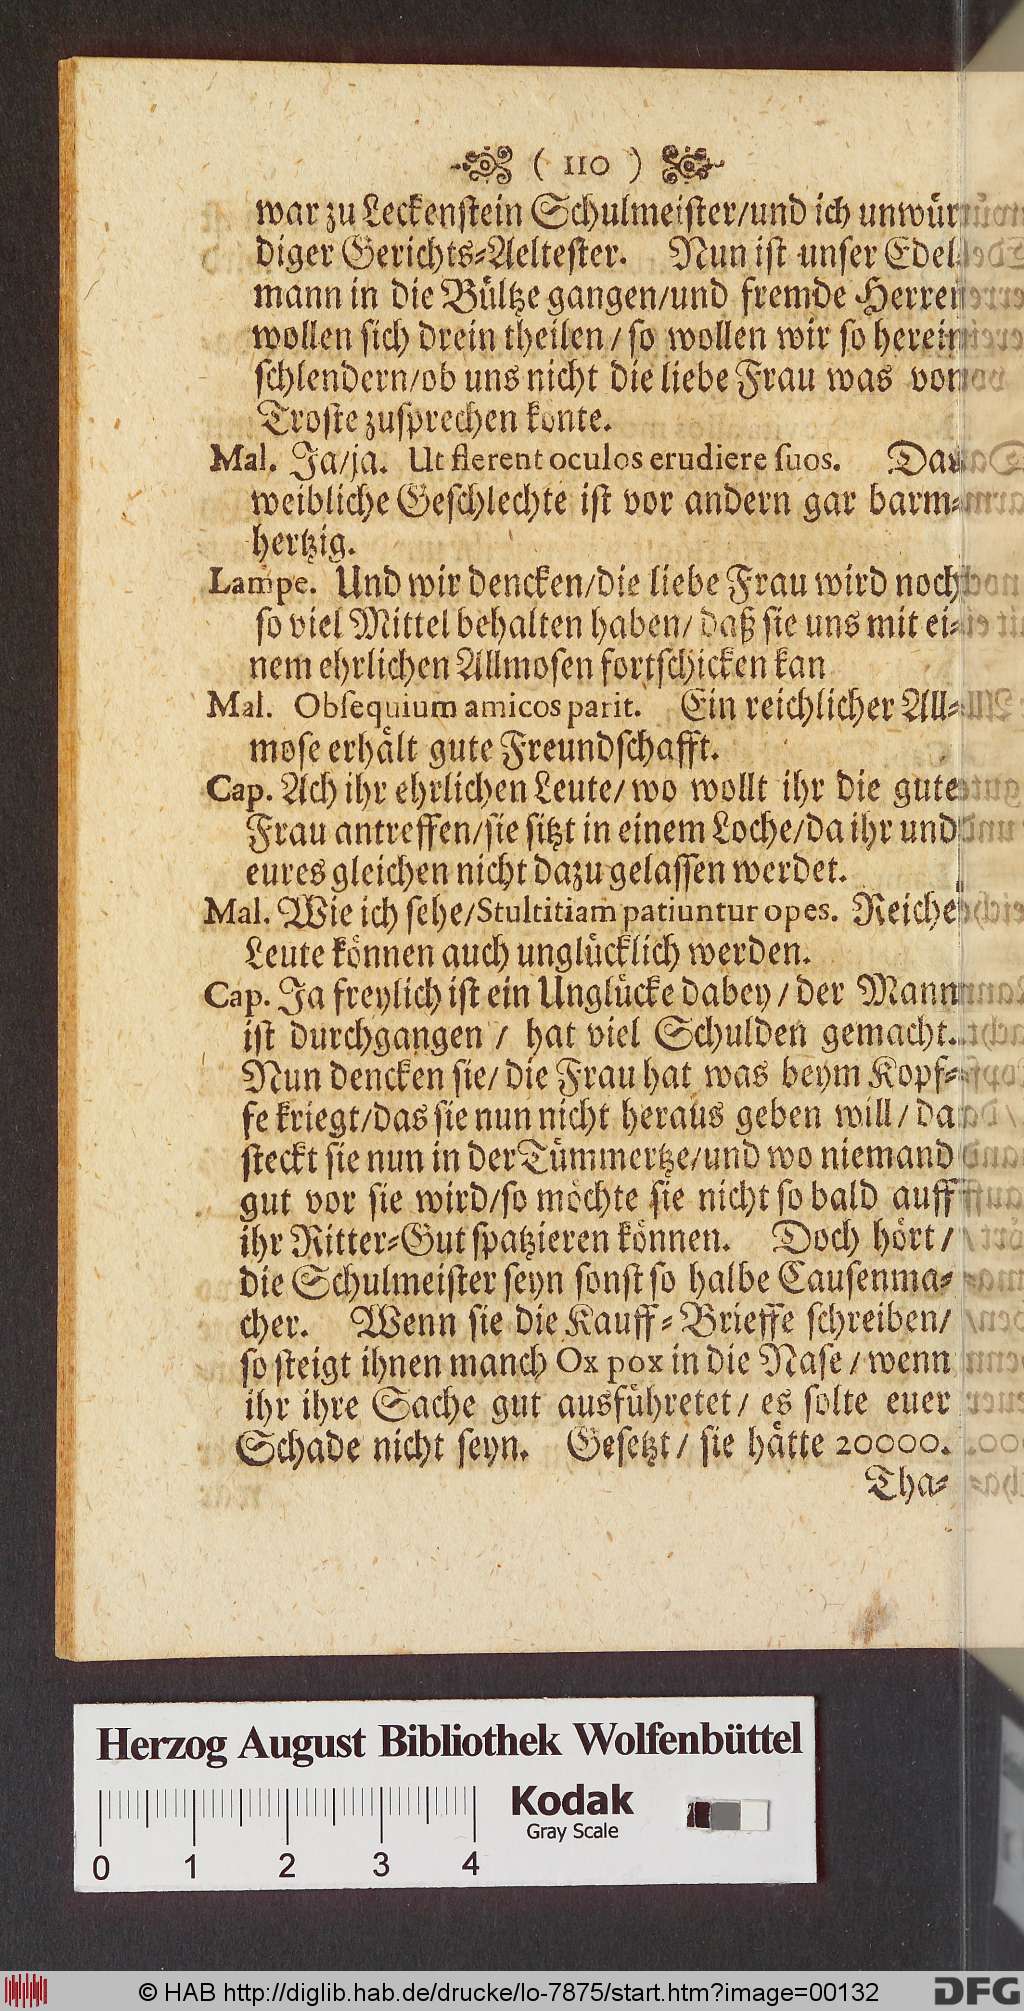 ( 110 )
war zu Leckenstein Schulmeister/und ich unwür
diger Gerichts-Aeltester. Nun ist unser Edel-
mann in die Bültze gangen/und fremde Herren
wollen sich drein theilen/ so wollen wir so herein
schlendern/ob uns nicht die liebe Frau was von
Troste zusprechen könte.
Mal. Ja/ja. Ut flerent oculos erudiere suos. Das
weibliche Geschlechte ist vor andern gar barm-
hertzig.
Lampe. Und wir dencken/die liebe Frau wird noch
so viel Mittel behalten haben/ daß sie uns mit ei-
nem ehrlichen Allmosen fortschicken kan
Mal. Obsequium amicos parit. Ein reichlicher All-
mose erhält gute Freundschafft.
Cap. Ach ihr ehrlichen Leute/ wo wollt ihr die gute
Frau antreffen/sie sitzt in einem Loche/da ihr und
eures gleichen nicht dazu gelassen werdet.
Mal. Wie ich sehe/Stultitiam patiuntur opes. Reiche
Leute können auch unglücklich werden.
Cap. Ja freylich ist ein Unglücke dabey/ der Mann
ist durchgangen / hat viel Schulden gemacht.
Nun dencken sie/ die Frau hat was beym Kopf-
fe kriegt/das sie nun nicht heraus geben will/ da
steckt sie nun in der Tümmertze/und wo niemand
gut vor sie wird/so möchte sie nicht so bald auff
ihr Ritter-Gut spatzieren können. Doch hört/
die Schulmeister seyn sonst so halbe Causenma-
cher. Wenn sie die Kauff-Brieffe schreiben/
so steigt ihnen manch Ox pox in die Nase/ wenn
ihr ihre Sache gut ausführetet/ es solte euer
Schade nicht seyn. Gesetzt/ sie hätte 20000.
Tha-
Herzog August Bibliothek Wolfenbüttel
Kodak
Gray Scale
0 1 2 3 4
© HAB http://diglib.hab.de/drucke/lo-7875/start.htm?image=00132
DFG